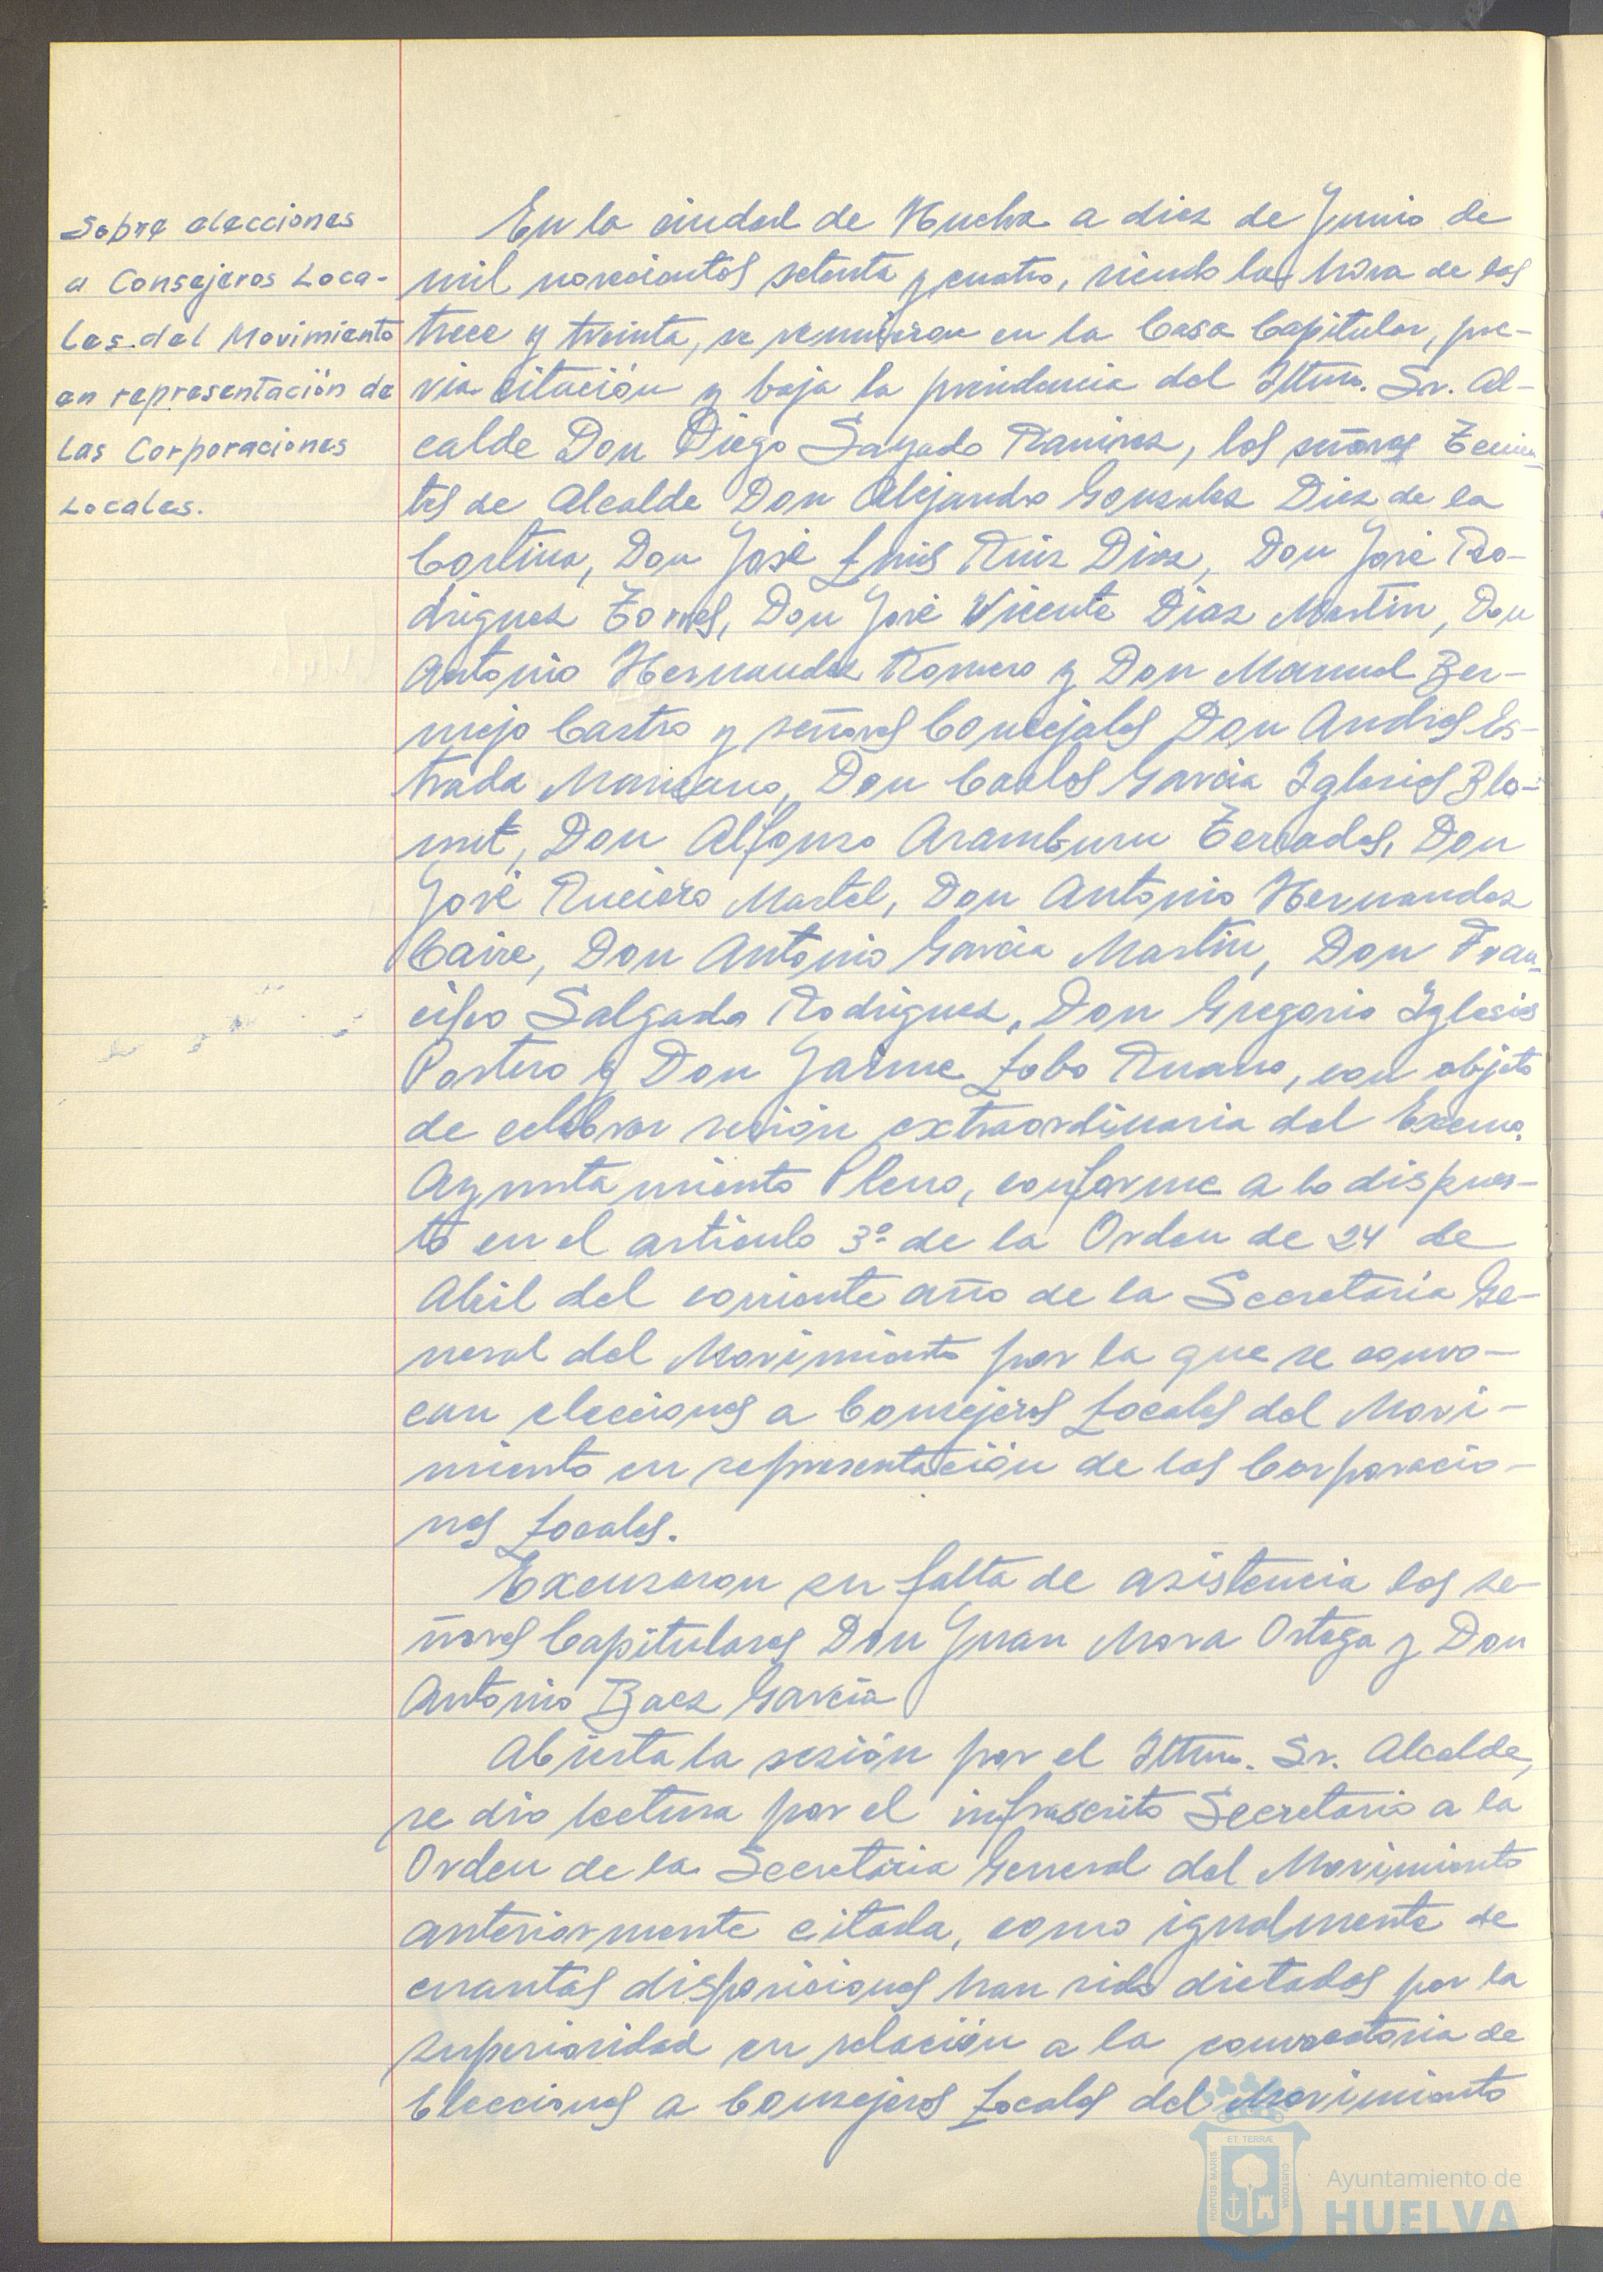 Sobre elecciones
a Consejeros Loca-
les del Movimiento
en representación de
las Corporaciones
Locales.
En la ciudad de Huelva a diez de Junio de
mil novecientos setenta y cuatro, siendo las hora de las
trece y treinta, se reunieron en la Casa Capitular, pre-
via citación y bajo la presidencia del Iltmo. Sr. Al-
calde Don Diego Sayago Ramírez, los señores Tenien-
tes de Alcalde Don Alejandro Gonzalez Diez de la
Cortina, Don José Luis Ruiz Diaz, Don José Ro-
driguez Torres, Don José Vicente Diaz Martin, Don
Antonio Hernandez Romero y Don Manuel Ber-
mejo Castro y señores Concejales Don Andres Es-
trada Manzano, Don Carlos Garcia Iglesias Blo-
unt, Don Alfonso Aramburu Terrades, Don
José Ruciero Martel, Don Antonio Hernandez
Caire, Don Antonio Garcia Martin, Don Fran-
cisco Salgado Rodriguez, Don Gregorio Iglesias
Postero y Don Jaime Lobo Ruano, con objeto
de celebrar sesión extraordinaria del Excmo.
Ayuntamiento Pleno, conforme a lo dispues-
to en el articulo 3º de la Orden de 24 de
Abril del corriente año de la Secretaría Ge-
neral del Movimiento por la que se convo-
can elecciones a Consejeros Locales del Movi-
miento en representación de las Corporacio-
nes Locales.
Excusaron su falta de asistencia los se-
ñores Capitulares Don Juan Mora Ortega y Don
Antonio Baez Garcia
Abierta la sesión por el Iltmo. Sr. Alcalde,
se dio lectura por el infrascrito Secretario a la
Orden de la Secretaria General del Movimiento
anteriormente citada, como igualmente de
cuantas disposiciones han sido dictadas por la
superioridad en relación a la convocatoria de
Elecciones a Consejeros Locales del Movimiento
PORTUS MARIS
ET TERRÆ
CUSTODIA
Ayuntamiento de
HUELVA